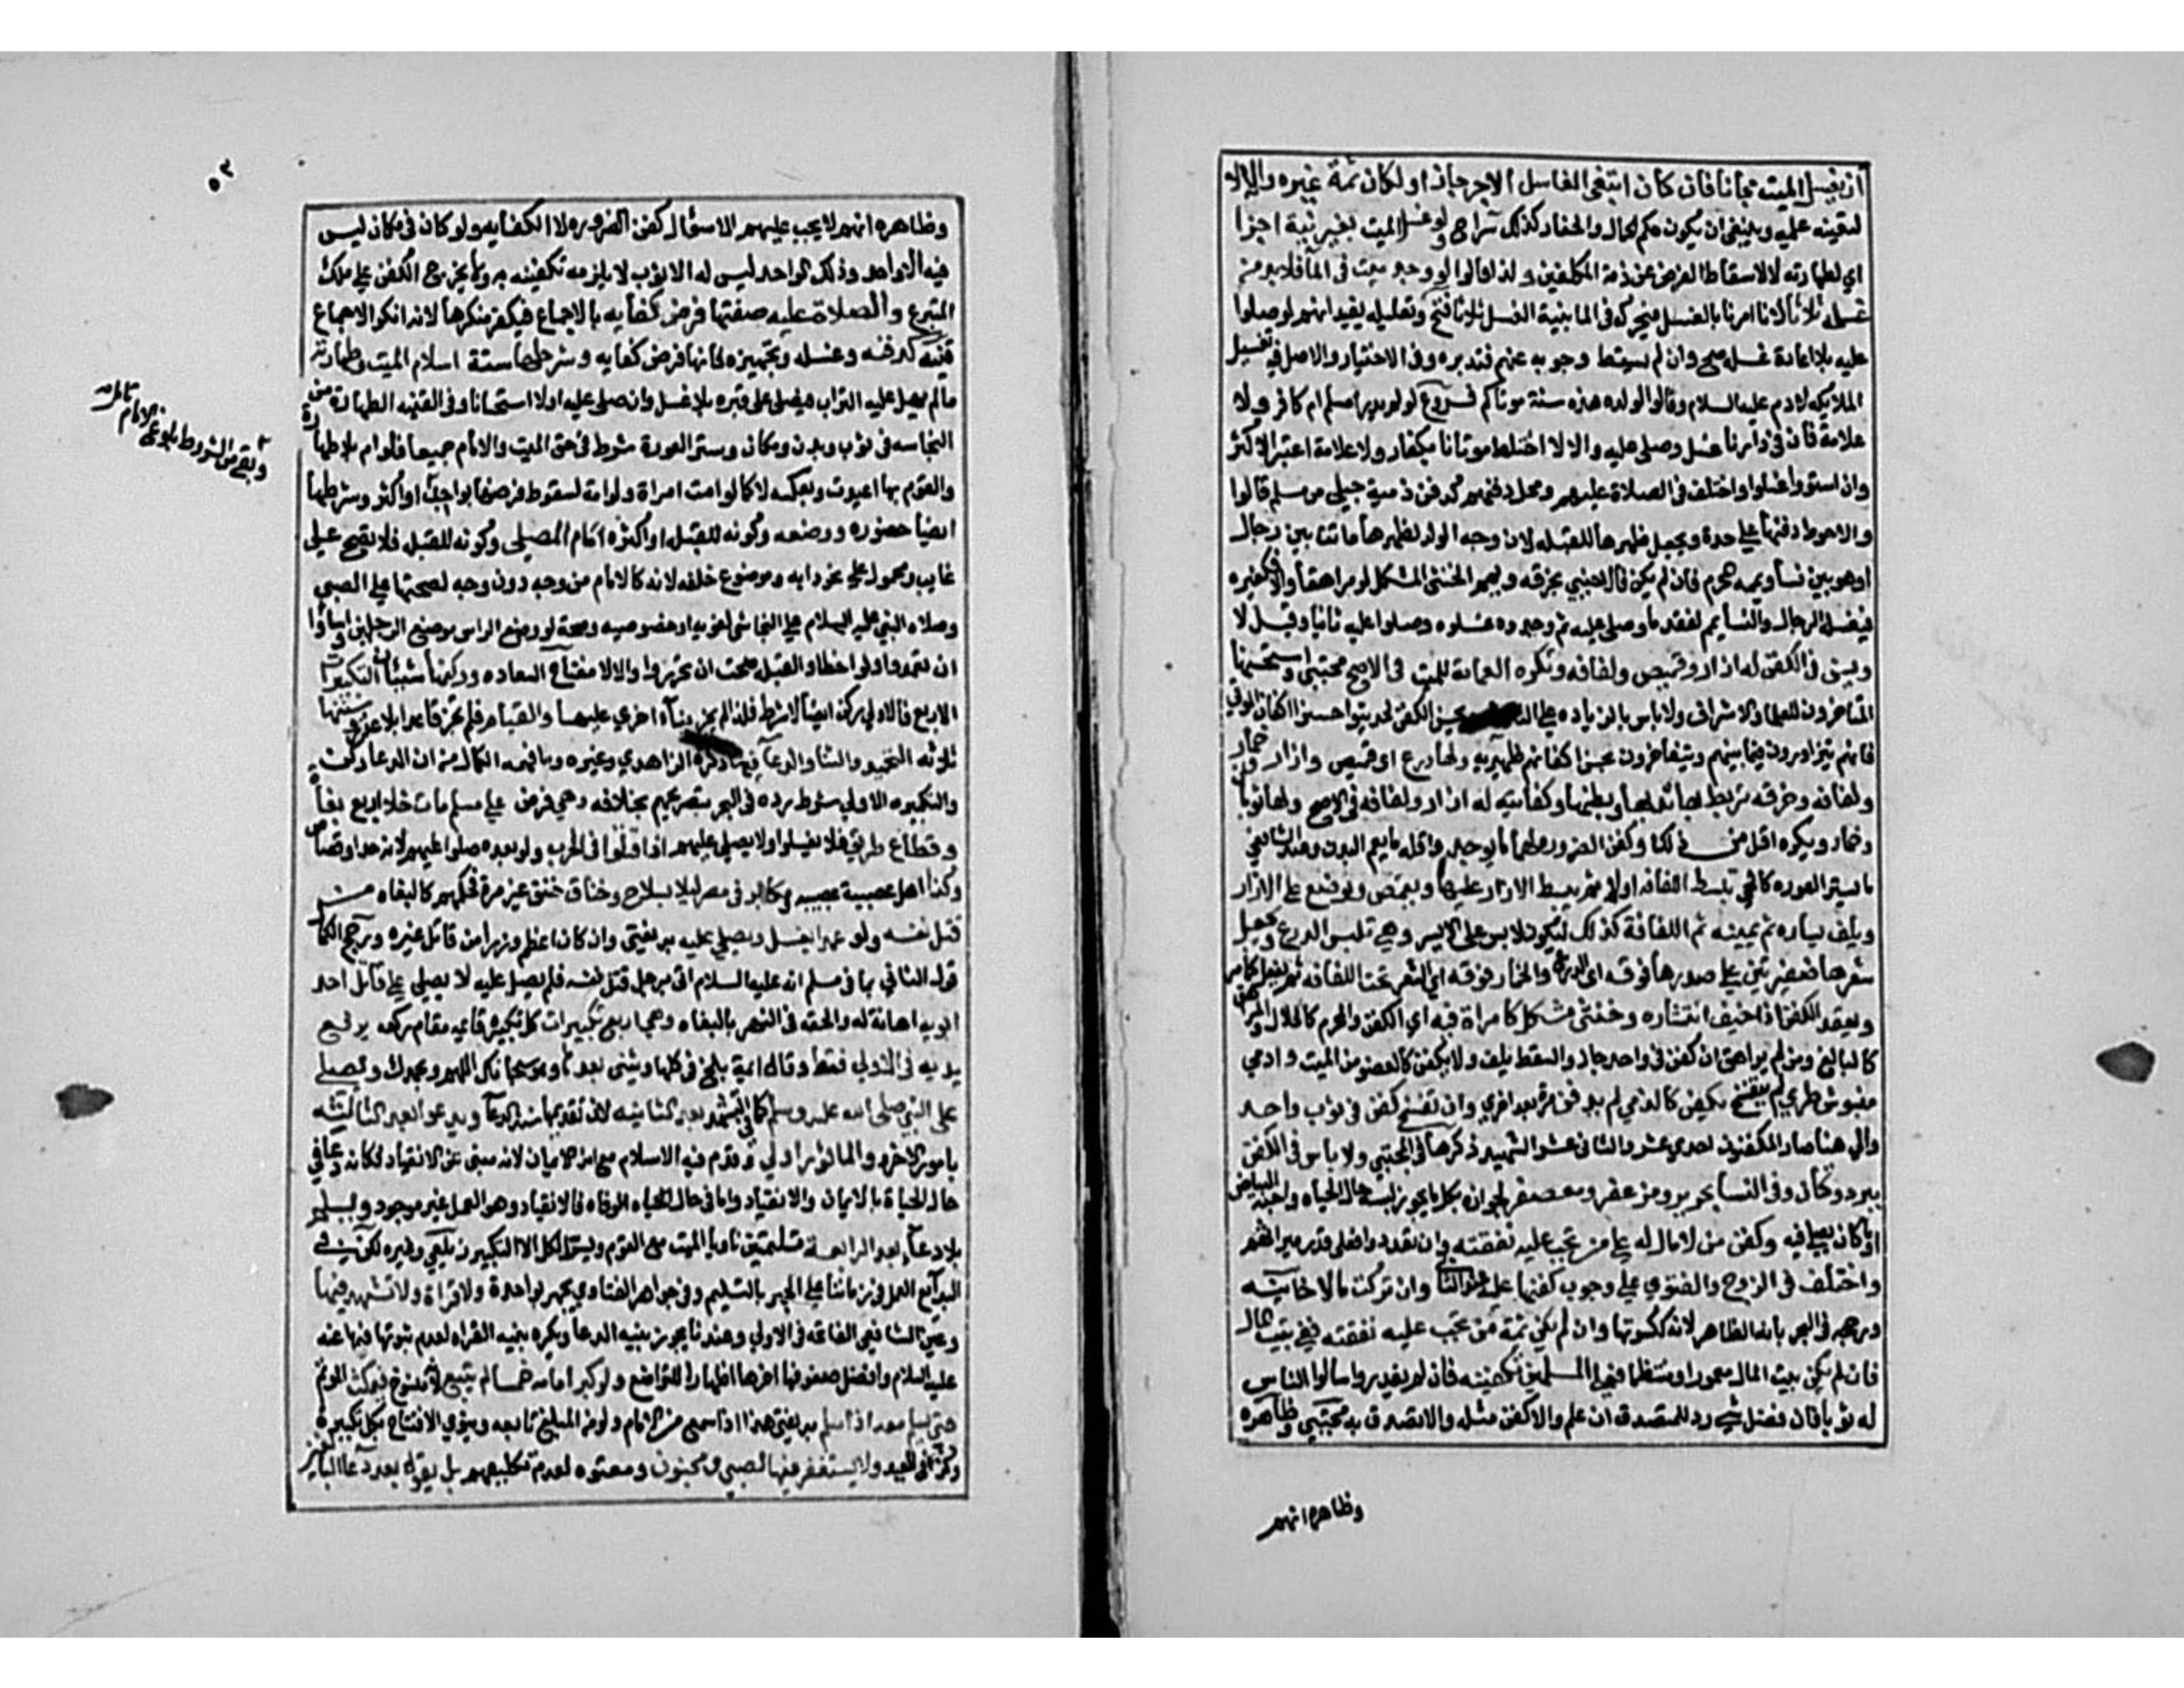 ان يغسل الميت مجانا فان كان ابتغى الغاسل الاجر جاز ان لو كان ثمة غيره والا لا
لتعينه عليه وينبغي ان يكون حكم الحمال والحفار كذلك سراج ولو غسل الميت بغير نية اجزا
اي لطهارته لا لاسقاط الفرض عن ذمة المكلفين ولذا قالوا لو وجد ميت في الما فلا بد من
غسله ثلاثا لانا امرنا بالغسل فيحركه في الما بنية الغسل ثلاثا فتح وتعليله يفيد انهم لو صلوا
عليه بلا اعادة غسله صح وان لم يسقط وجوبه عنهم فتدبره وفي الاختيار والاصل في تغسيل
الملايكة لادم عليه السلام وقالوا لولده هذه سنة موتاكم فروع لو لم يدر امسلم ام كافر ولا
علامة فان في دارنا غسل وصلي عليه والا لا اختلط موتانا بكفار ولا علامة اعتبر الاكثر
وان استووا غسلوا واختلف في الصلاة عليهم ومحل دفنهم كدفن ذمية حبلى من مسلم قالوا
والاحوط دفنها على حدة ويجعل ظهرها للقبلة لان وجه الولد لظهرها ماتت بين رجال
او هو بين نسا ويممه محرم فان لم يكن فالاجنبي بخرقه وييمم الخنثى المشكل لو مراهقا والا فكغيره
فيغسله الرجال والنسا يمم لفقد ما وصلي عليه ثم وجدوه غسلوه وصلوا عليه ثانيا وقيل لا
ويسن في الكفن له ازار وقميص ولفافه وتكره العمامة للميت في الاصح مجتبى واستحسنها
المتاخرون للعلما والاشراف ولا باس بالزياده على الثلاثه ويحسن الكفن لحديث حسنوا اكفان الموتى
فانهم يتزاورون فيما بينهم ويتفاخرون بحسن اكفانهم ظهيريه ولها درع اي قميص وازار وخمار
ولفافه وخرقه تربط بها ثدياها وبطنها وكفايته له ازار ولفافه في الاصح ولها ثوبان
وخمار ويكره اقل من ذلك وكفن الضرورة لهما ما يوجد واقله ما يعم البدن وعند الشافعي
ما يستر العوره كالحي تبسط اللفافه اولا ثم يبسط الازار عليها ويقمص ويوضع على الازار
ويلف يساره ثم يمينه ثم اللفافة كذلك ليكون الايمن على الايسر وهي تلبس الدرع ويجعل
شعرها ضفيرتين على صدرها فوقه اي الدرع والخمار فوقه اي الشعر تحت اللفافه ثم يفعل كما مر
ويعقد الكفن ان خيف انتشاره وخنثى مشكل كامراة فيه اي الكفن والمحرم كالحلال والمراهق
كالبالغ ومن لم يراهق ان كفن في واحد جاز والسقط يلف ولا يكفن كالعضو من الميت وادمي
منبوش طري لم يتفسخ يكفن كالذي لم يدفن مرة بعد اخري وان تفسخ كفن في ثوب واحد
والى هنا صار المكفنون احدي عشر والثاني عشر الشهيد ذكرها في المجتبي ولا باس في الكفن
ببرود وكتان وفي النسا بحرير ومزعفر ومعصفر لجوازه بكل ما يجوز لبسه حال الحياه واحبه البياض
او ما كان يصلي فيه وكفن من لا مال له على من تجب عليه نفقته وان تعددوا فعلى قدر ميراثهم
واختلف في الزوج والفتوي علي وجوب كفنها عليه عند الثاني وان تركت مالا خانيته
ورجحه في البحر بانه الظاهر لانه ككسوتها وان لم يكن ثمة من تجب عليه نفقته ففي بيت المال
فان لم يكن بيت المال معمورا او منتظما فعلى المسلمين تكفينه فان لم يقدروا سالوا الناس
له ثوبا فان فضل شي رد للمتصدق ان علم والا كفن مثله والا تصدق به مجتبي وظاهره
وظاهره انهم
٥٣
وظاهره انهم لا يجب عليهم الا سؤال كفن الضروره لا الكفايه ولو كان في مكان ليس
فيه الا واحد وذلك الواحد ليس له الا ثوب لا يلزمه تكفينه به ولا يخرج الكفن على ملك
المتبرع والصلاة عليه صفتها فرض كفايه بالاجماع فيكفر منكرها لانه انكر الاجماع
قنيه كدفنه وغسله وتجهيزه فانها فرض كفايه وشرطها ستة اسلام الميت وطهارته
ما لم يهل عليه التراب فيصلى على قبره بلا غسل وان صلي عليه اولا استحسانا وفي القنيه الطهارة من
النجاسه في ثوب وبدن ومكان وستر العورة شرط في حق الميت والامام جميعا فلو ام بلا طهارة
والقوم بها اعيدت وبعكسه لا كما لو امت امراة ولو امة لسقوط فرضها بواحد
وبقي من الشروط بلوغ الامام تامله
ايضا حضوره ووضعه وكونه للقبله او اكثره امام المصلي وكونه للقبله فلا تصح على
غايب ومحمول على نحو دابه وموضوع خلفه لانه كالامام من وجه دون وجه لصحتها على الصبي
وصلاه النبي عليه السلام على النجاشي لغويه او خصوصيه وصحت لو وضع الراس موضع الرجلين واساؤا
ان تعمدوا ولو اخطاوا القبله صحت ان تحروا والا لا مفتاح السعاده وركنها شيئان التكبيرات
الاربع فالاولي ركن ايضا لا شرط فلذا لم يجز بناء اخري عليها والقيام فلم تجز قاعدا بلا عذر وسننها
ثلاثه التحميد والثنا والدعا فيها ذكره الزاهدي وغيره وما فهمه الكمال من ان الدعا ركن
والتكبيره الاولى شرط رده في البحر بتصريحهم بخلافه وهي فرض على مسلم مات خلا اربع بغاه
وقطاع طريق فلا يغسلوا ولا يصلي عليهم اذا قتلوا في الحرب ولو بعده صلوا عليهم لانه حد او قصاص
وكذا اهل عصبية ومكابر في مصر ليلا بسلاح وخناق خنق غير مرة فحكمهم كالبغاه من
قتل نفسه ولو عمدا يغسل ويصلي عليه به يفتى وان كان اعظم وزرا من قاتل غيره ورجح الكمال
قول الثاني بما في مسلم انه عليه السلام اتى برجل قتل نفسه فلم يصل عليه لا يصلى على قاتل احد
ابويه اهانة له والحقه في النهر بالبغاه وهي اربع تكبيرات كل تكبيرة قايمه مقام ركعه يرفع
يديه في الاولى فقط وقال ايمة بلخ في كلها ويثنى بعدها وهو سبحانك اللهم وبحمدك ويصلي
على النبي صلى الله عليه وسلم كما في التشهد بعد الثانيه لان تقديمها سنة الدعا ويدعو بعد الثالثه
بامور الاخره والماثور اولى وقدم فيه الاسلام مع انه الايمان لانه منبى عن الانقياد فكانه دعا في
حال الحياة بالايمان والانقياد واما في حال الوفاه فالانقياد وهو العمل غير موجود ويسلم
بلا دعا بعد الرابعة تسليمتين ناويا الميت مع القوم ويسر الكل الا التكبير زيلعي وغيره لكن في
البدايع العمل في زماننا على الجهر بالتسليم وفي جواهر الفتاوي يجهر بواحدة ولا قراة ولا تشهد فيها
وعين الشافعي الفاتحه في الاولي وعندنا يجوز بنيه الدعا ويكره بنيه القراه لعدم ثبوتها فيها عنه
عليه السلام وافضل صفوفها اخرها اظهارا للتواضع ولو كبر امامه خمسا لم يتبع لانه منسوخ فيمكث الموتم
حتى يسلم معه اذا سلم به يفتى هذا اذا سمع من الامام ولو من المبلغ تابعه وينوي الافتتاح بكل تكبيرة
وكذا في العيد ولا يستغفر فيها لصبي ومجنون ومعتوه لعدم تكليفهم بل يقول بعد دعا البالغين